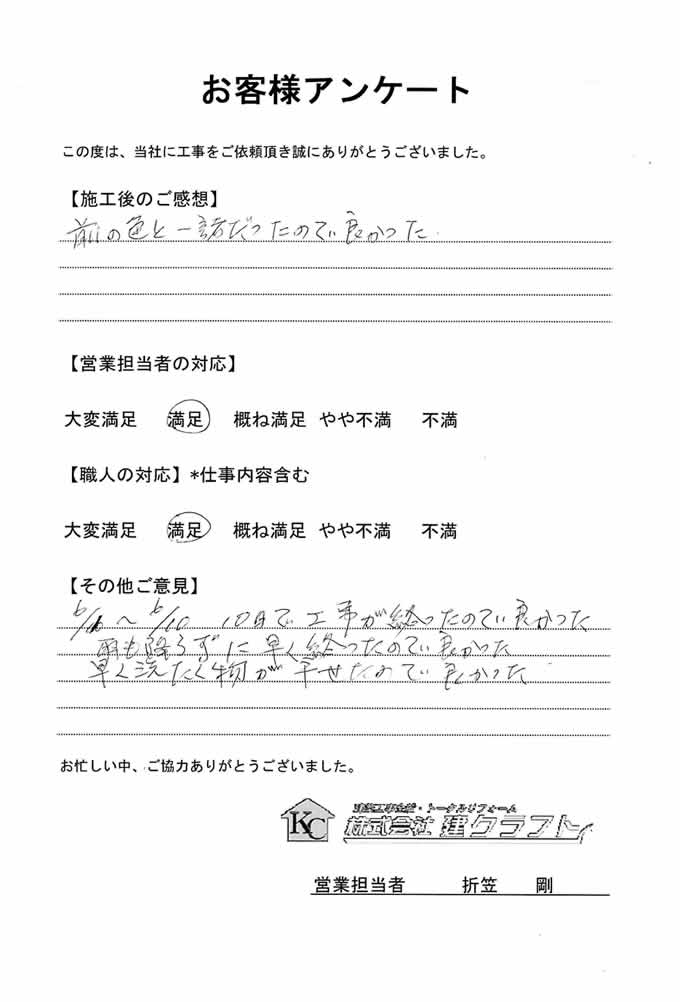 お客様アンケート
この度は、当社に工事をご依頼頂き誠にありがとうございました。
【施工後のご感想】
前の色と一諸だったので良かった.
【営業担当者の対応】
大変満足 満足 概ね満足 やや不満 不満
【職人の対応】*仕事内容含む
大変満足 満足 概ね満足 やや不満 不満
【その他ご意見】
～6/10 10日で工事が終ったので良かった
雨も降らずに早く終ったので良かった
早く洗たく物が干せたので良かった
お忙しい中、ご協力ありがとうございました。
KC
建築工事全般・トータルリフォーム
株式会社 建クラフト
営業担当者 折笠 剛